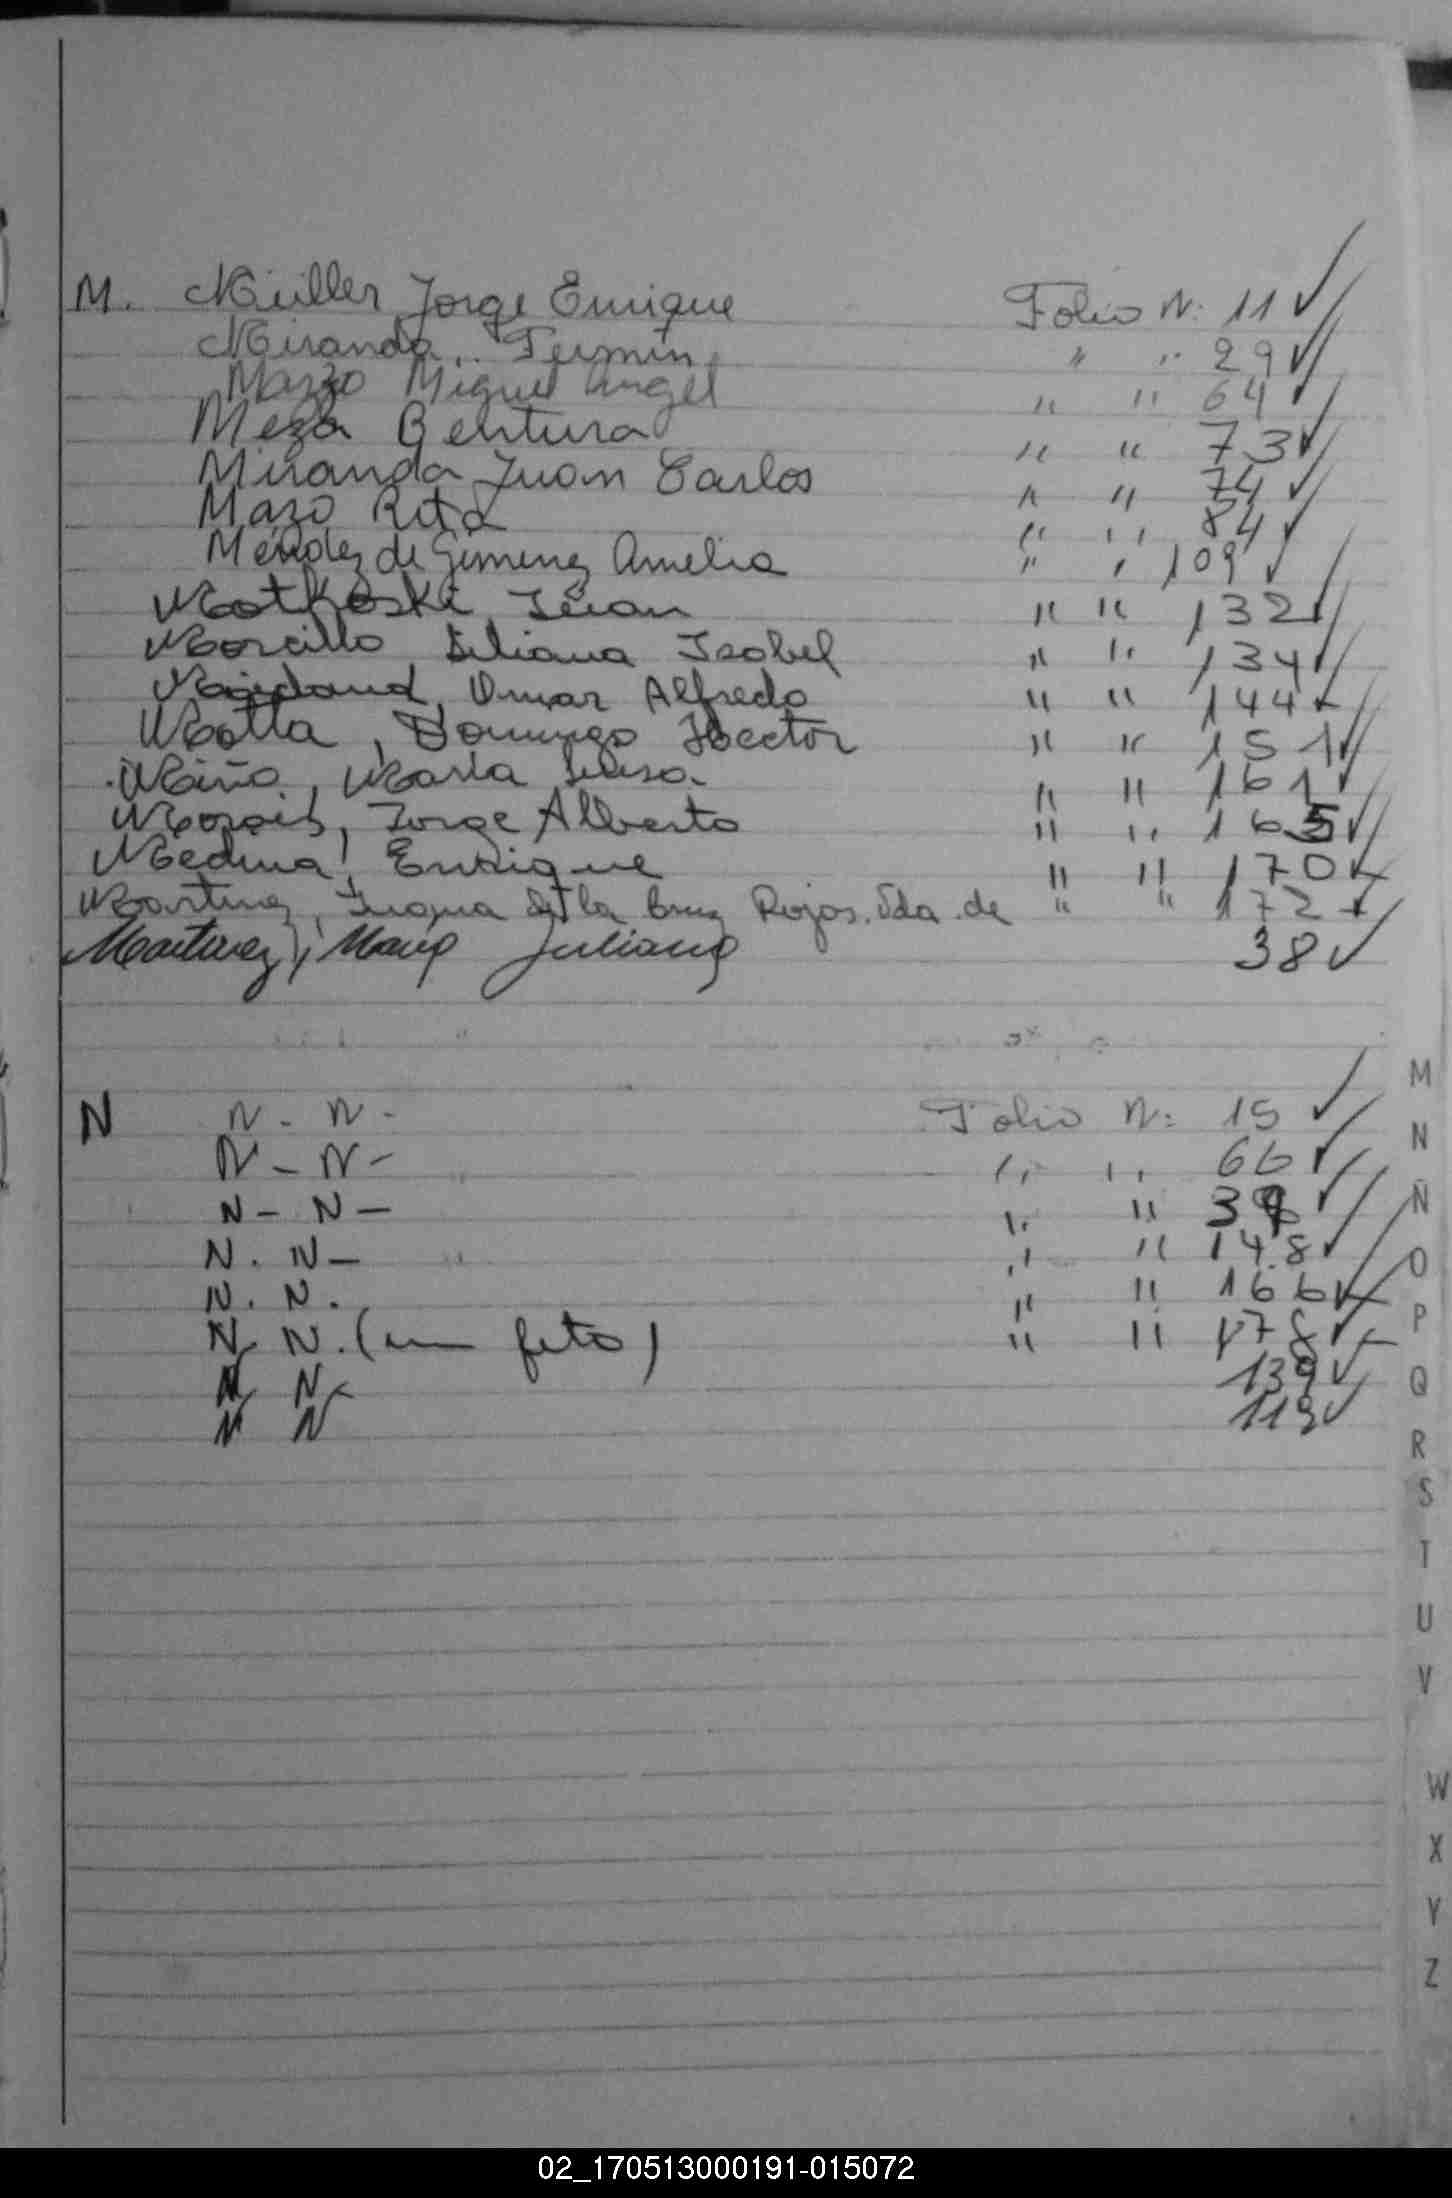 M. Müller Jorge Enrique Folio Nº 11 ✓
Miranda, Fermin " " 29 ✓
Mazzo Miguel Angel " " 64 ✓
Meza Bentura " " 73 ✓
Miranda Juan Carlos " " 74 ✓
Mazo Rita " " 84 ✓
Méndez de Gimenez Amelia " " 109 ✓
Juan " " 132 ✓
Morcillo Liliana Isabel " " 134 ✓
Omar Alfredo " " 144 ✓
Motta, Domingo Hector " " 151 ✓
Miño, María Luisa " " 161 ✓
Jorge Alberto " " 165 ✓
Medina, Enrique " " 170 ✓
Martinez, Juana de la Cruz Rojas. Vda. de " " 172 ✓
Martinez, María Juliana 38 ✓
N N - N - Folio Nº 15 ✓
N - N - " " 66 ✓
N - N - " " 3 ✓
N. N - " " 148 ✓
N. N. " " 166 ✓
N, N. (un feto) " " 178 ✓
N, N, 139 ✓
N N 119 ✓
M
N
Ñ
O
P
Q
R
S
T
U
V
W
X
Y
Z
02_170513000191-015072